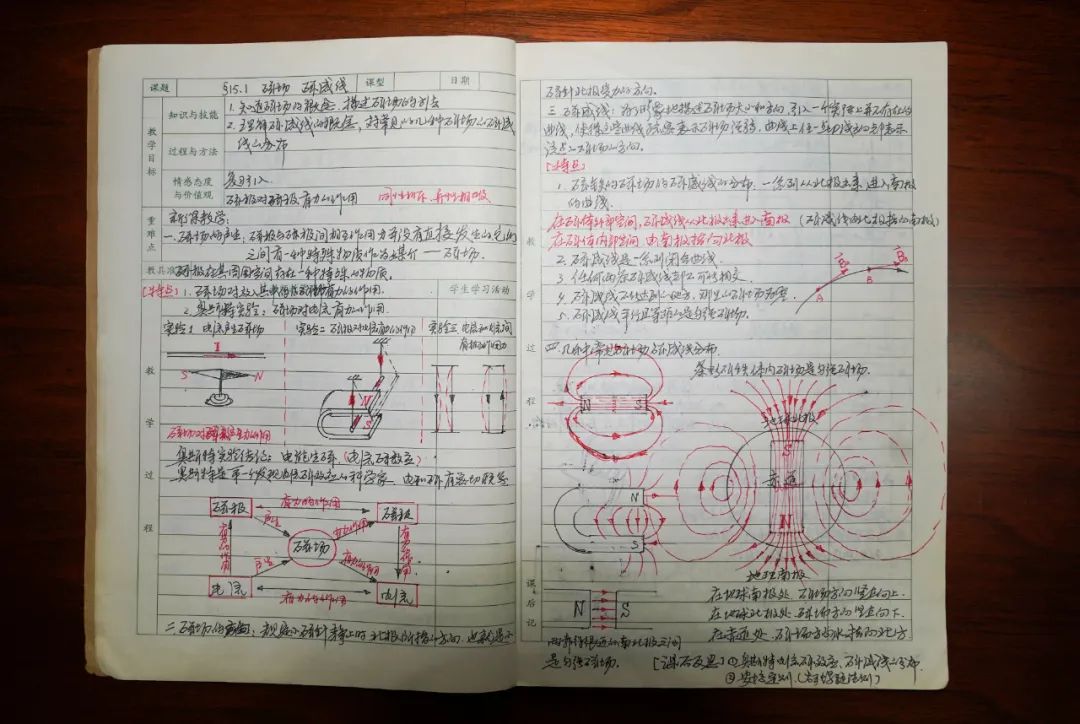 课题 §15.1 磁场 磁感线 课型 日期
教学目标
知识与技能
1. 知道磁场的概念, 描述磁场的方法
过程与方法
2. 理解磁感线的概念, 对常见的几种磁场的磁感
线的分布
情感态度与价值观
复习引入
磁极对磁极有力的作用 同性相斥、异性相吸
重难点
新课教学:
一. 磁场的产生: 磁极与磁极间相互作用力并没有直接发生的, 它们
之间有一种特殊物质作为媒介 — 磁场.
教具准
磁极在其周围空间存在一种特殊的物质.
[特点] 1. 磁场对放入其中的磁极有力的作用.
学生学习活动
2. 奥斯特实验: 磁场对电流有力的作用.
实验1 电流产生磁场 实验二 磁极对电流有力的作用 实验三 电流和电流间
有相互作用力
I
S N
N
S
教学过程
奥斯特实验结论: 电能生磁. (电流磁效应)
奥斯特是第一个发现电流磁效应的科学家. 电和磁有密切联系
磁极 有力的作用 磁极
产生 有力的作用
磁场
有力的作用
产生 有力的作用
电流 有力的作用 电流
二. 磁场的方向: 规定小磁针静止时北极所指的方向. 也就是小
磁针北极受力的方向.
三. 磁感线: 为了形象地描述磁场大小和方向, 引入一个实际上并不存在的
曲线, 使得这些曲线疏密表示磁场强弱, 曲线上任一点的切线方向表示
该点的磁场的方向.
[特点]
1. 磁铁的磁场的磁感线的分布. 一条列从北极出来, 进入南极
的曲线.
在磁体外部空间, 磁感线从北极出来进入南极 (磁感线由北极指向南极)
在磁体内部空间 由南极指向北极
2. 磁感线是一条列闭合曲线.
3. 任何两条磁感线都不可能相交.
4. 磁感线不能达到的地方, 那里的磁场为零.
5. 磁感线平行且等距的是匀强磁场.
A B
教学过程
四. 几种常见的磁场磁感线分布.
条形磁铁体内磁场是匀强磁场.
N S
地球北极
S
赤道
N
地球南极
N
S
课后记
N S
在地球南极处. 磁场方向竖直向上.
在地球北极处. 磁场方向竖直向下.
在赤道处. 磁场方向水平指向北方
两靠得很近的南北极之间
是匀强磁场.
[课后反思] ①. 奥斯特电流磁效应. 磁感线的分布.
②安培定则. (右手螺旋法则)